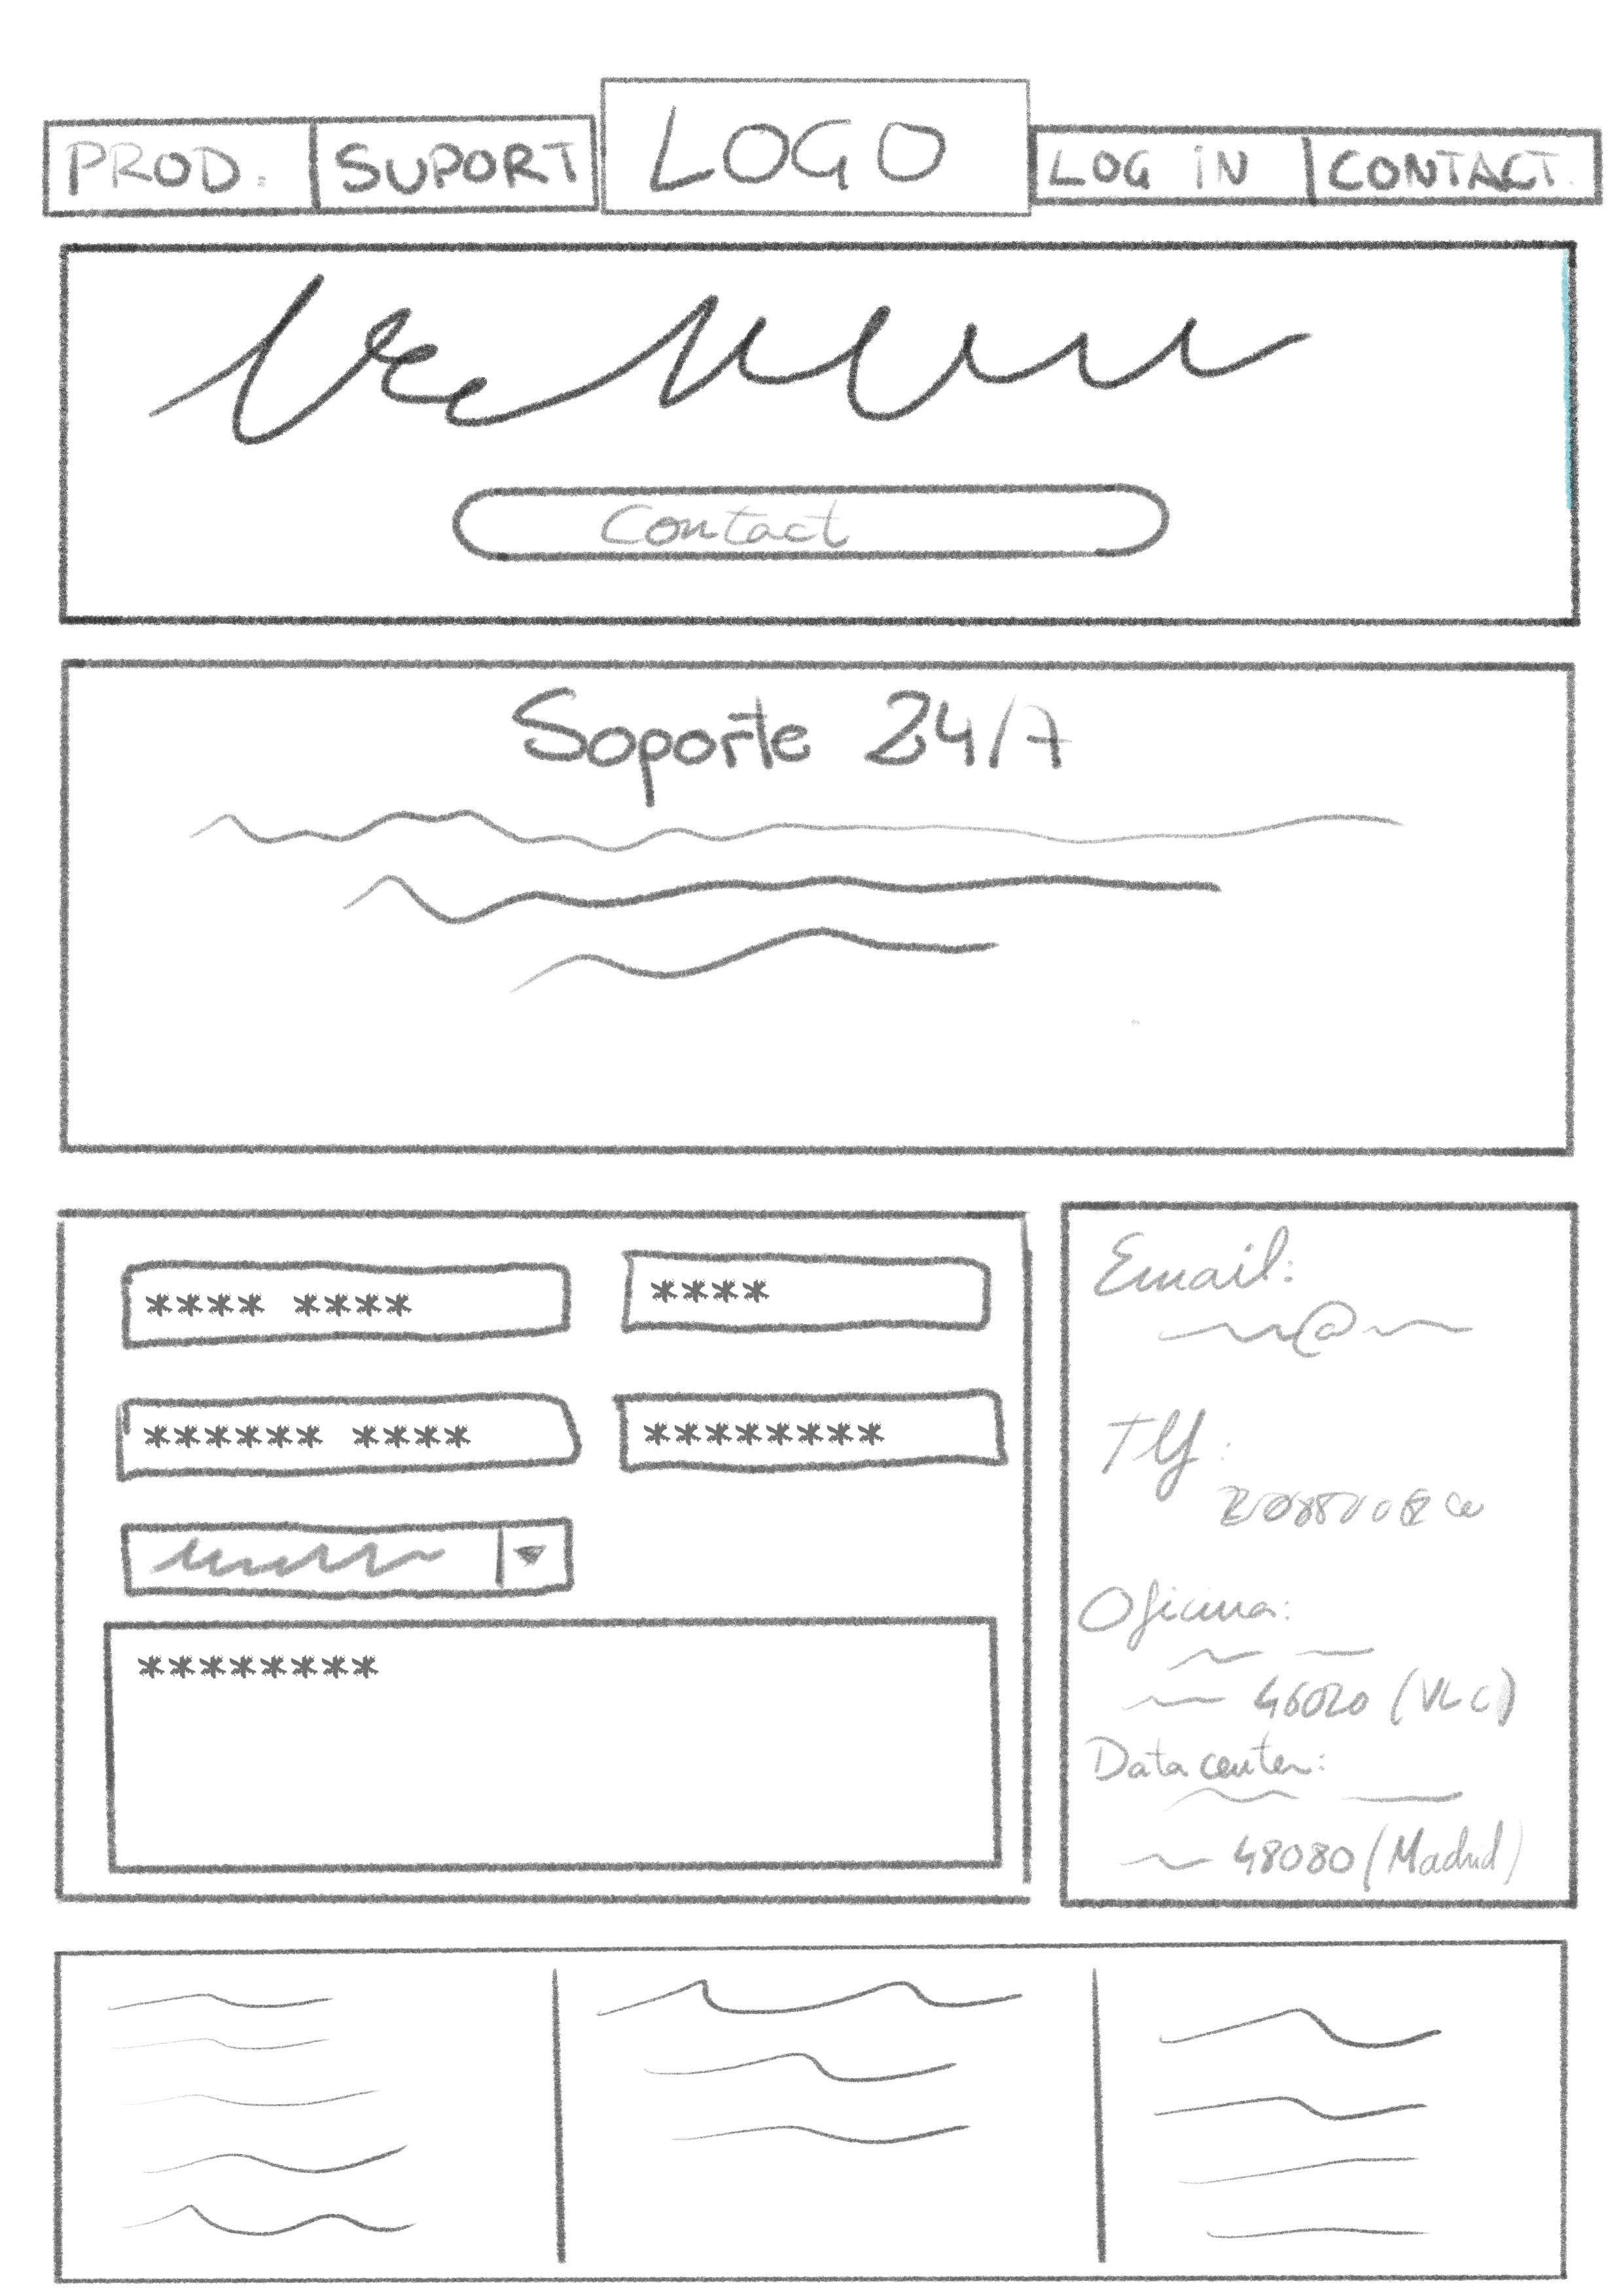 PROD. SUPORT LOGO LOG IN CONTACT.
Contact
Soporte 24/7
**** ****
****
****** ****
********
********
Email:
@
Tlf:
Oficina:
46020 (VLC)
Data center:
48080 (Madrid)